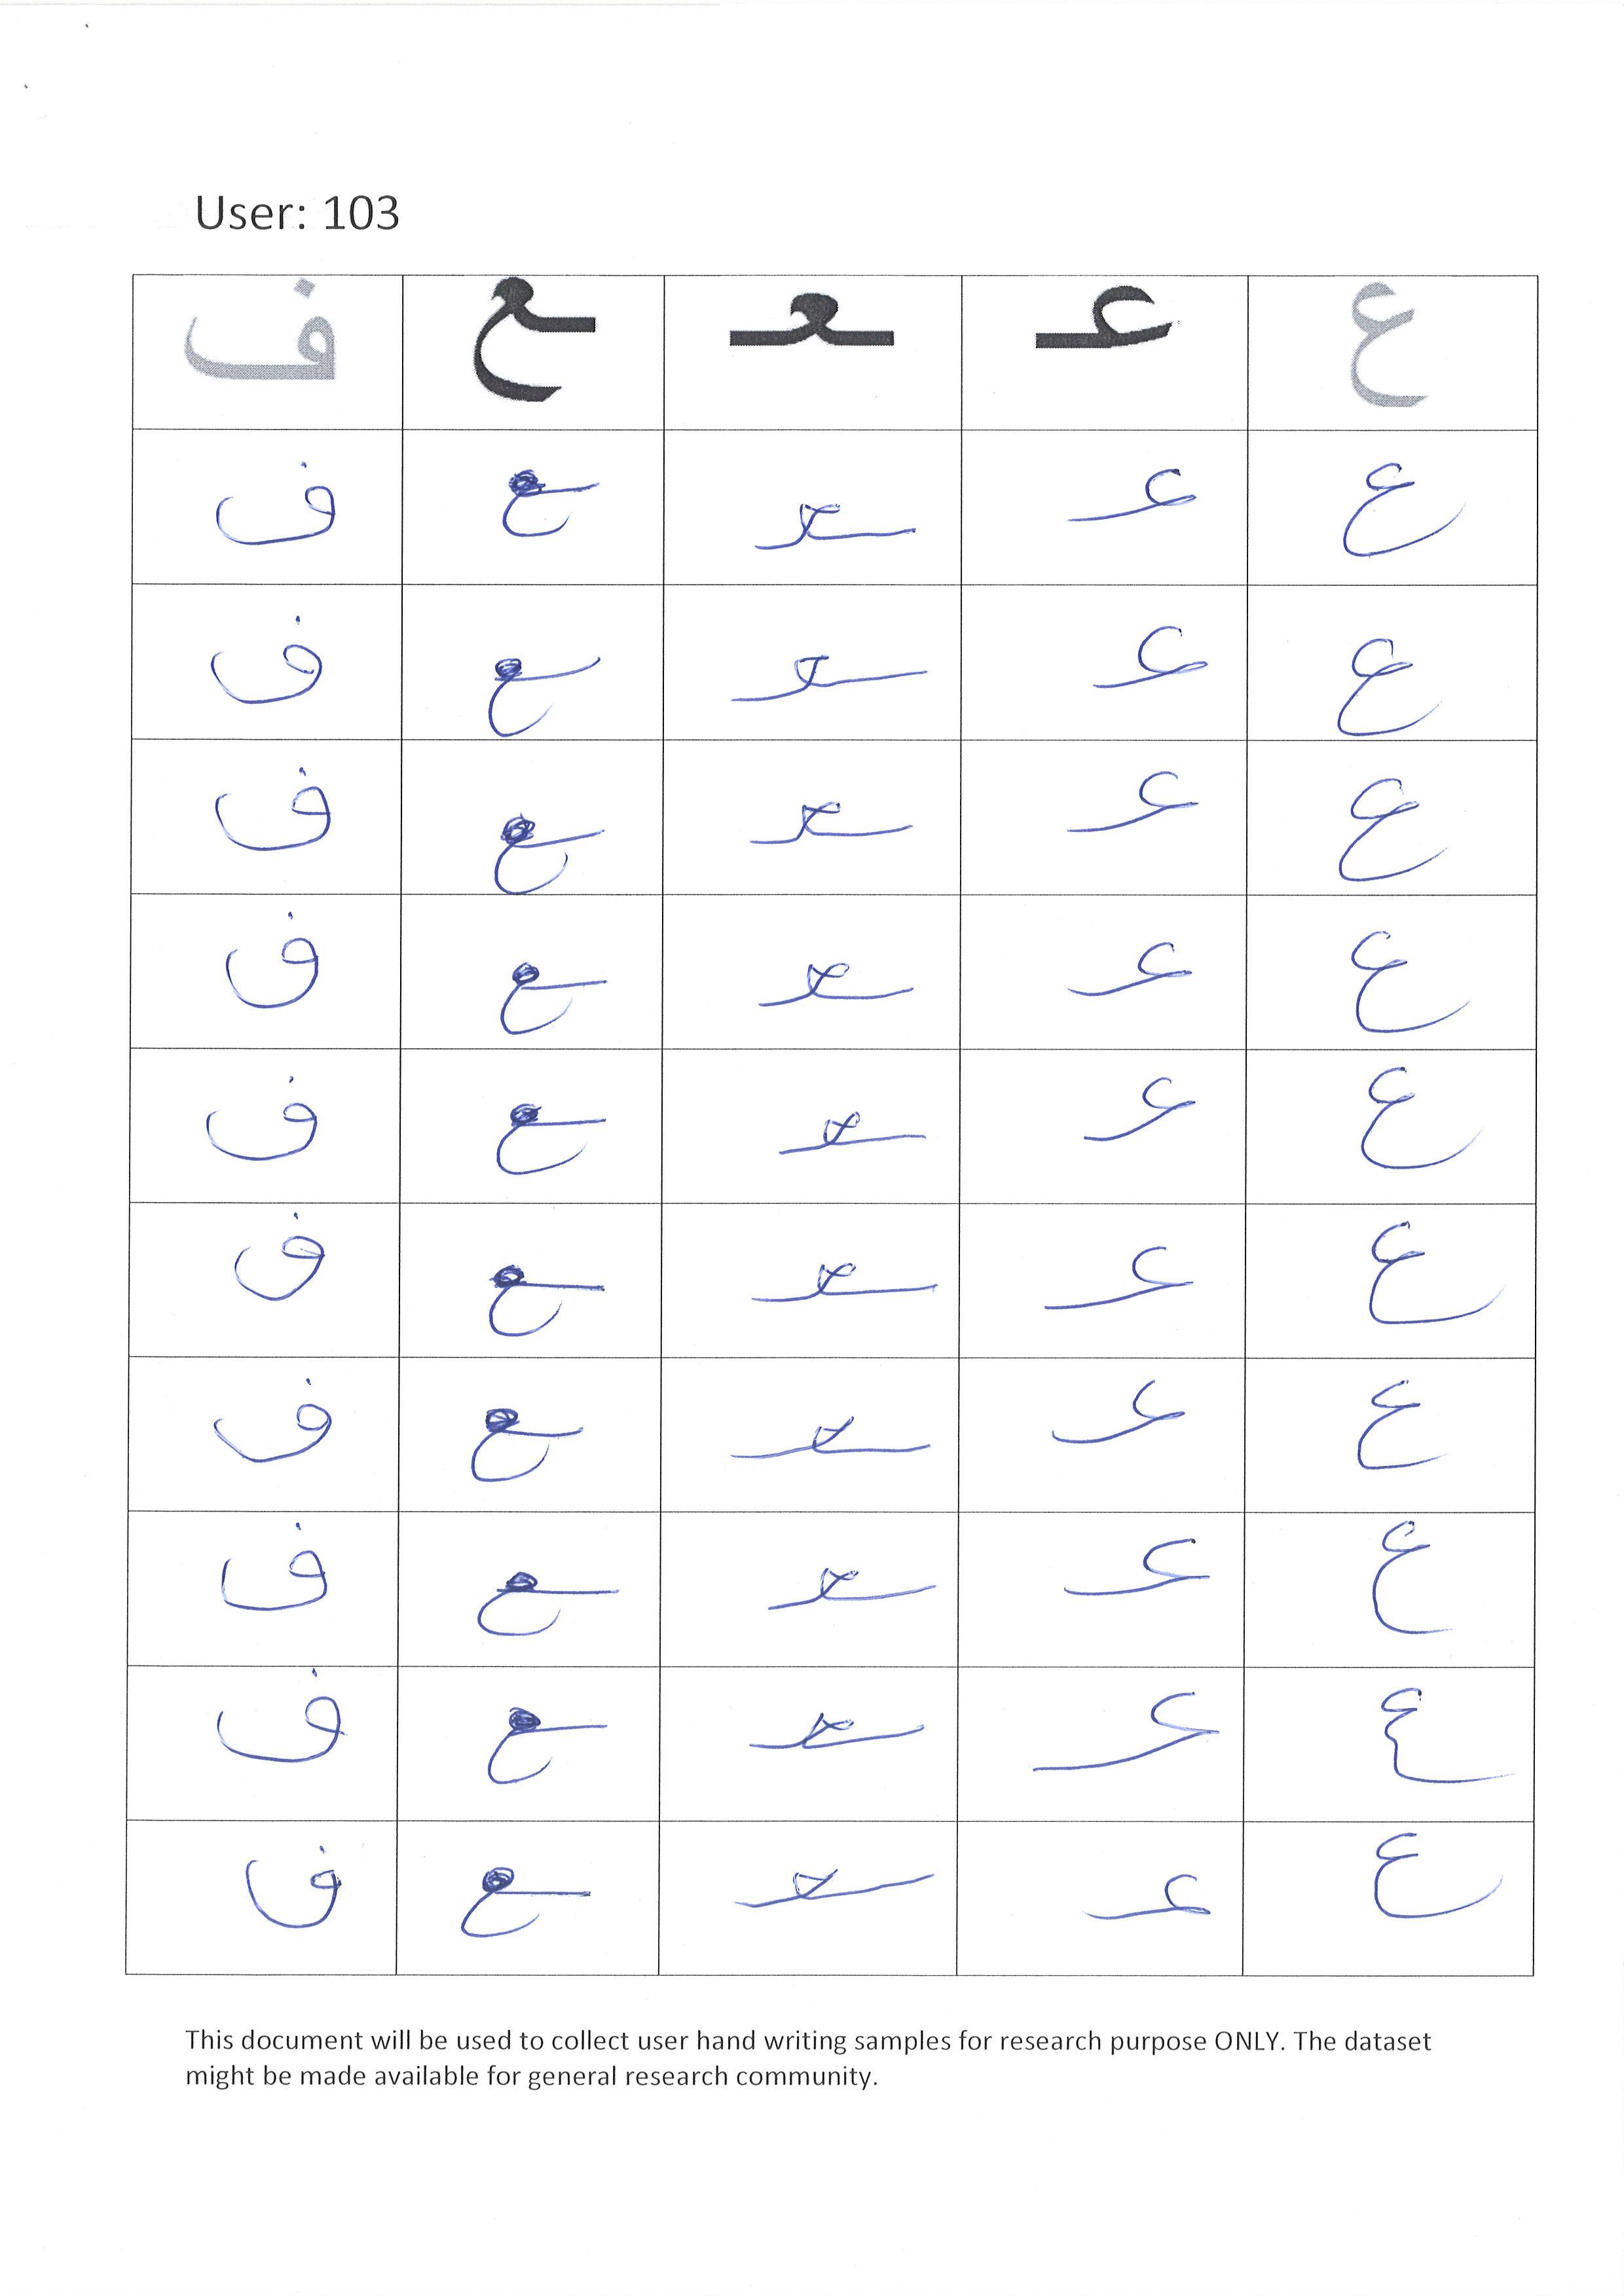 User: 103
ع عـ ـعـ ـع ف
ع عـ ـعـ ـع ف
ع عـ ـعـ ـع ف
ع عـ ـعـ ـع ف
ع عـ ـعـ ـع ف
ع عـ ـعـ ـع ف
ع عـ ـعـ ـع ف
ع عـ ـعـ ـع ف
ع عـ ـعـ ـع ف
ع عـ ـعـ ـع ف
ع عـ ـعـ ـع ف
This document will be used to collect user hand writing samples for research purpose ONLY. The dataset
might be made available for general research community.